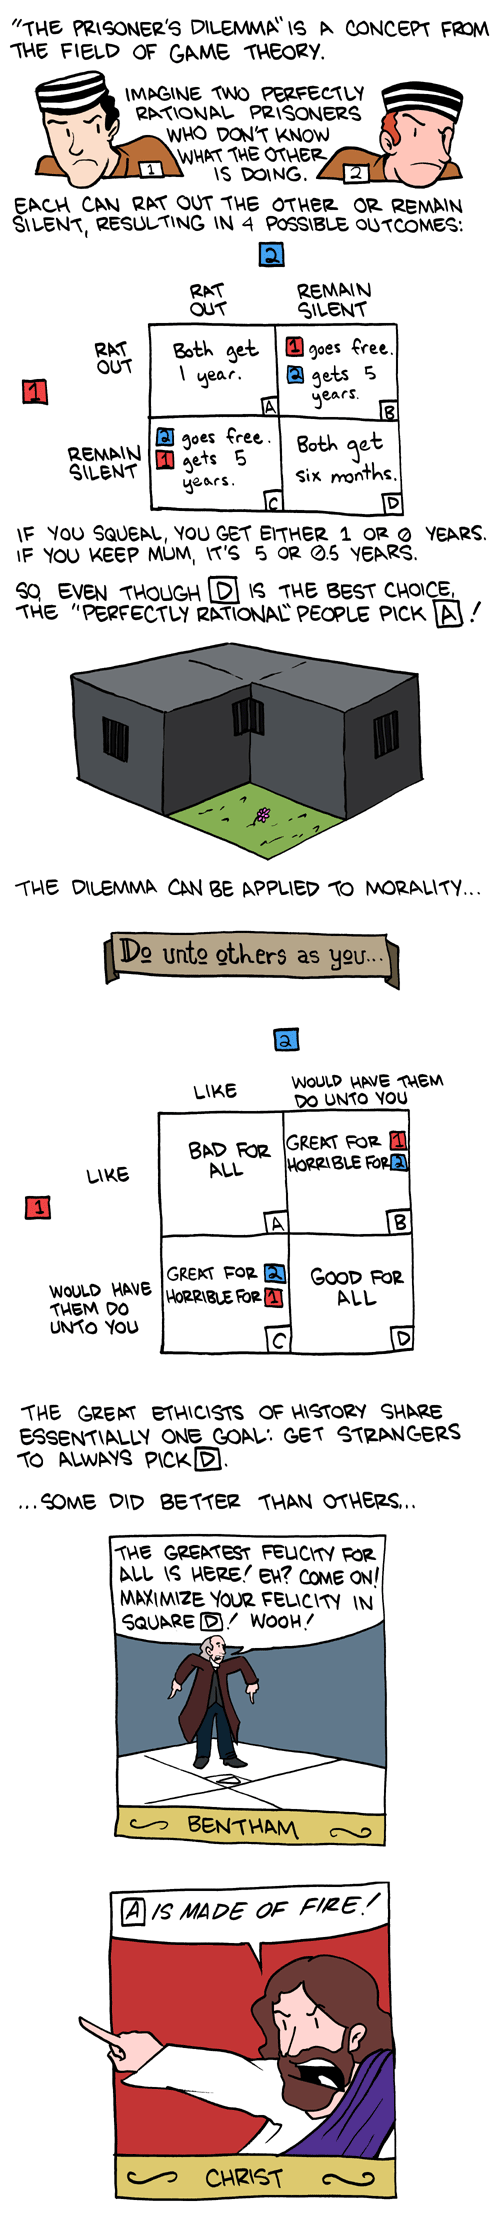 "THE PRISONER'S DILEMMA" IS A CONCEPT FROM
THE FIELD OF GAME THEORY.
IMAGINE TWO PERFECTLY
RATIONAL PRISONERS
WHO DON'T KNOW
WHAT THE OTHER
IS DOING.
1
2
EACH CAN RAT OUT THE OTHER OR REMAIN
SILENT, RESULTING IN 4 POSSIBLE OUTCOMES:
2
RAT
OUT
REMAIN
SILENT
1
RAT
OUT
Both get
1 year.
A
1 goes free.
2 gets 5
years.
B
REMAIN
SILENT
2 goes free.
1 gets 5
years.
C
Both get
six months.
D
IF YOU SQUEAL, YOU GET EITHER 1 OR 0 YEARS.
IF YOU KEEP MUM, IT'S 5 OR 0.5 YEARS.
SO, EVEN THOUGH D IS THE BEST CHOICE,
THE "PERFECTLY RATIONAL" PEOPLE PICK A!
THE DILEMMA CAN BE APPLIED TO MORALITY...
Do unto others as you...
2
LIKE
WOULD HAVE THEM
DO UNTO YOU
1
LIKE
BAD FOR
ALL
A
GREAT FOR 1
HORRIBLE FOR 2
B
WOULD HAVE
THEM DO
UNTO YOU
GREAT FOR 2
HORRIBLE FOR 1
C
GOOD FOR
ALL
D
THE GREAT ETHICISTS OF HISTORY SHARE
ESSENTIALLY ONE GOAL: GET STRANGERS
TO ALWAYS PICK D.
...SOME DID BETTER THAN OTHERS...
THE GREATEST FELICITY FOR
ALL IS HERE! EH? COME ON!
MAXIMIZE YOUR FELICITY IN
SQUARE D! WOOH!
D
BENTHAM
A IS MADE OF FIRE!
CHRIST